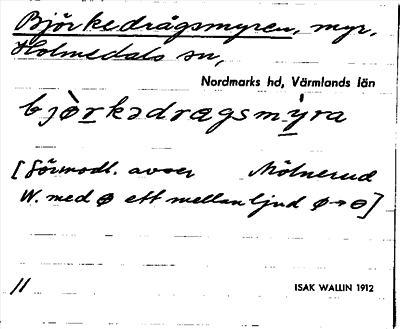 Björkedrågsmyren, myr,
Holmedals sn,
Nordmarks hd, Värmlands län
bjò̀rkədragsmỳra
[Förmodl. avser Mölnerud
W. med ɵ ett mellanljud ø→ɵ]
11 ISAK WALLIN 1912